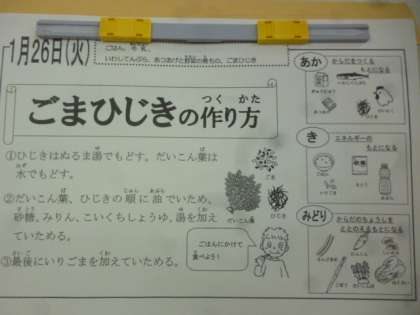 1月26日(火)
ごはん、牛乳、
いわしてんぷら、あつあげと野菜の煮もの、ごまひじき
ごまひじきの作り方
①ひじきはぬるま湯でもどす。だいこん葉は
水でもどす。
②だいこん葉、ひじきの順に油でいため、
砂糖、みりん、こいくちしょうゆ、湯を加え
ていためる。
③最後にいりごまを加えていためる。
ごま
だいこん葉
ひじき
ごはんにかけて
食べよう!
あか
からだをつくる
もとになる
ぎゅうにゅう
ひじき
き
エネルギーの
もとになる
ごはん
みどり
からだのちょうしを
ととのえるもとになる
にんじん
ごぼう